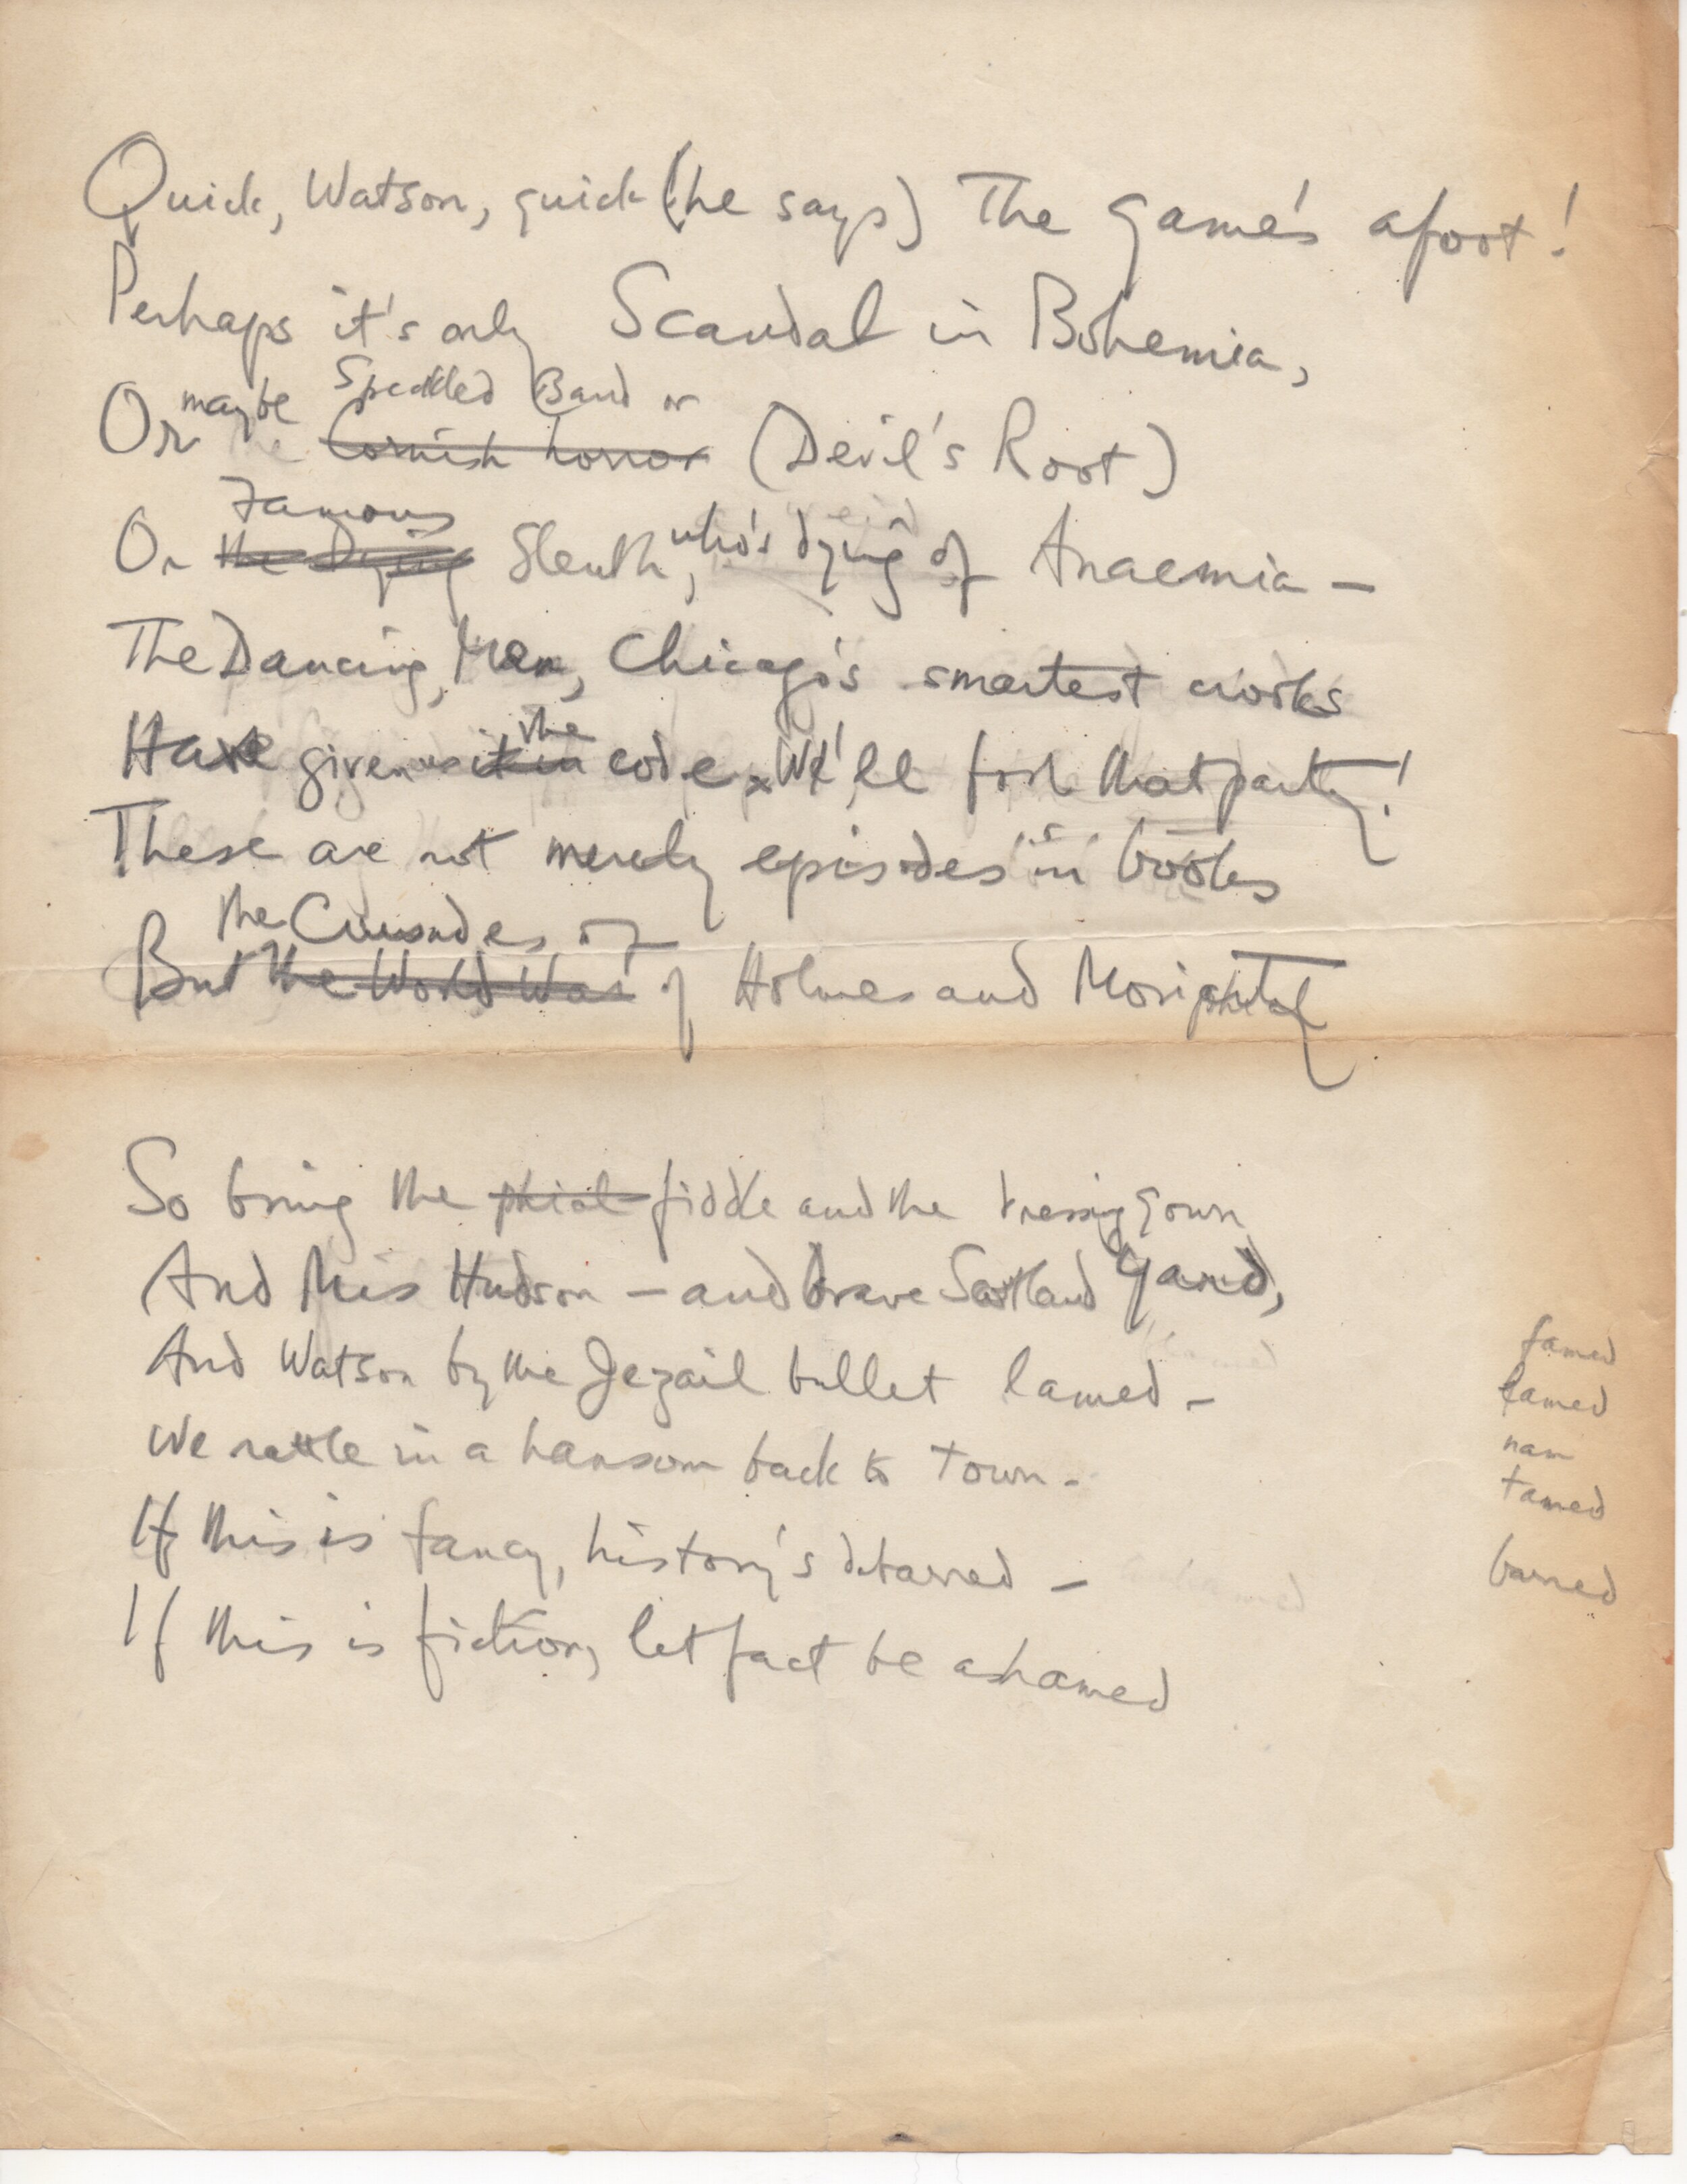 Quick, Watson, quick (he says) The game's afoot!
Perhaps it's only Scandal in Bohemia,
maybe Speckled Band or
Or the Cornish horror (Devil's Root)
Famous
Or the Dying Sleuth, who's dying of Anaemia —
The Dancing Men, Chicago's smartest crooks
the
Have given us it in code. We'll foil that party!
These are not merely episodes in books
the Crusades of
But the World War of Holmes and Moriarty
So bring the phial fiddle and the dressing gown
And Mrs Hudson — and brave Scotland Yard,
And Watson by the Jezail bullet lamed —
We rattle in a hansom back to town.
If this is fancy, history's debarred —
If this is fiction, let fact be ashamed
famed
lamed
nam
tamed
barred